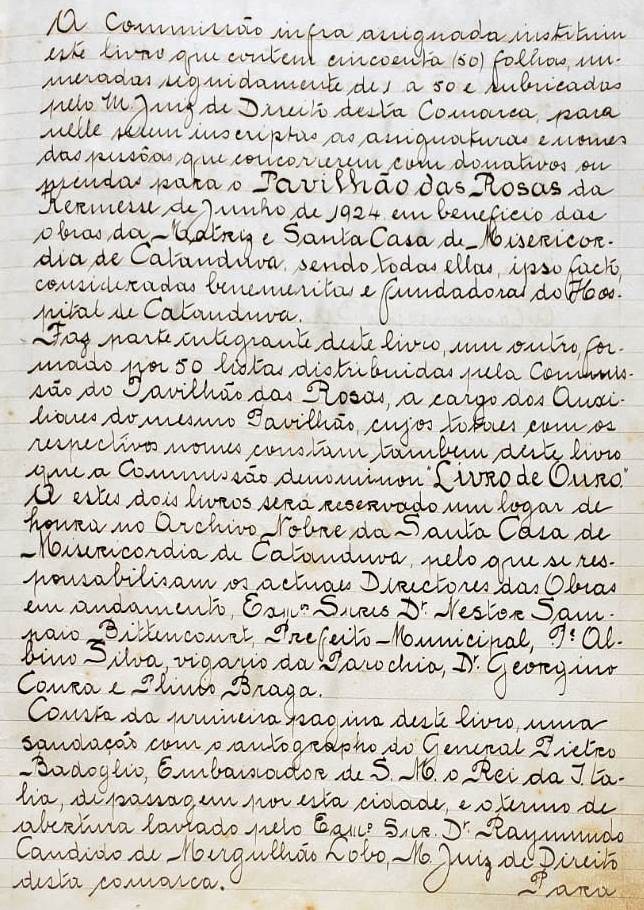 A Commissão infra assignada instituiu
este livro que contem cincoenta (50) folhas, nu-
meradas seguidamente de 1 a 50 e rubricadas
pelo M. Juiz de Direito desta Comarca, para
nelle serem inscriptas as assignaturas e nomes
das pessôas que concorrerem com donativos ou
prendas para o Pavilhão das Rosas da
Kermesse de Junho de 1924 em beneficio das
obras da Matriz e Santa Casa de Misericor-
dia de Catanduva, sendo todas ellas, ipso facto,
consideradas benemeritas e fundadoras do Hos-
pital de Catanduva.
Faz parte integrante deste livro, um outro, for-
mado por 50 listas distribuidas pela Commis-
são do Pavilhão das Rosas, a cargo dos Auxi-
liares do mesmo Pavilhão, cujos totaes com os
respectivos nomes constam tambem deste livro
que a Commissão denominou "Livro de Ouro."
A estes dois livros será reservado um logar de
honra no Archivo Nobre da Santa Casa de
Misericordia de Catanduva, pelo que se res-
ponsabilisam os actuaes Directores das Obras
em andamento, Exmºs Snres Dr. Nestor Sam-
paio Bittencourt, Prefeito Municipal, Pe. Al-
bino Silva, vigario da Parochia, Dr. Georgino
Coura e Plinio Braga.
Consta da primeira pagina deste livro, uma
saudação com o autographo do General Pietro
Badoglio, Embaixador de S. M. o Rei da Ita-
lia, de passagem por esta cidade, e o termo de
abertura lavrado pelo Exmº Snr. Dr. Raymundo
Candido de Mergulhão Lobo, M. Juiz de Direito
desta comarca. Para